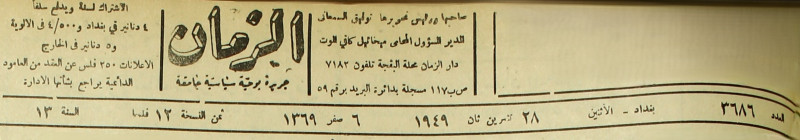 صاحبها ورئيس تحريرها توفيق السمعاني
المدير المسؤول المحامي ميخائيل كافي الموت
دار الزمان محلة البقچة تلفون ٧١٨٣
ص ب ١١٧ مسجلة بدائرة البريد برقم ٥٩
الزمان
جريدة يومية سياسية جامعة
الاشتراك لسنة ويدفع سلفاً
٤ دنانير في بغداد و ٤/٥٠٠ في الالوية
و ٥ دنانير في الخارج
الاعلانات ٢٥٠ فلس عن العقد من العامود
الدائمية يراجع بشأنها الادارة
العدد ٣٦٨٦ بغداد - الاثنين ٢٨ تشرين ثان ١٩٤٩ ٦ صفر ١٣٦٩ ثمن النسخة ١٢ فلسا السنة ١٣